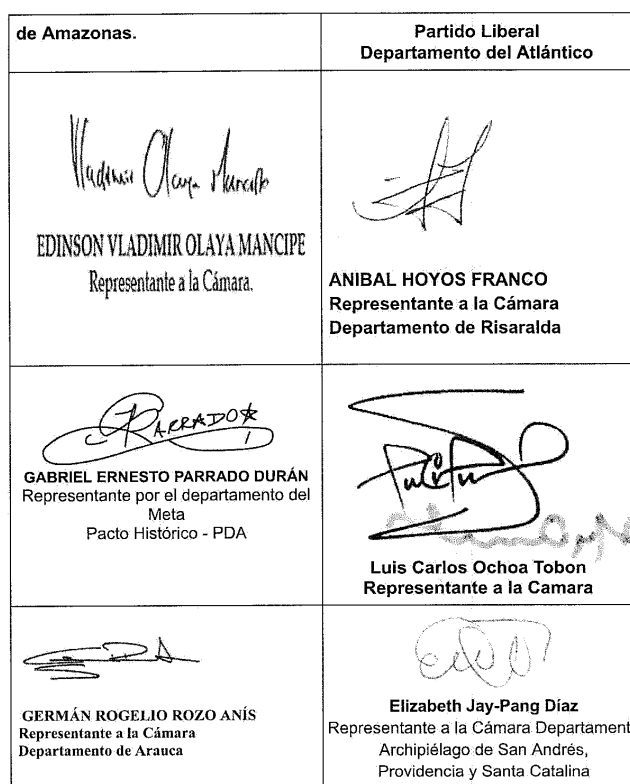 de Amazonas.
Partido Liberal
Departamento del Atlántico
Vladimir Olaya Mancipe
EDINSON VLADIMIR OLAYA MANCIPE
Representante a la Cámara.
ANIBAL HOYOS FRANCO
Representante a la Cámara
Departamento de Risaralda
PARRADO
GABRIEL ERNESTO PARRADO DURÁN
Representante por el departamento del
Meta
Pacto Histórico - PDA
Luis Carlos Ochoa Tobon
Representante a la Camara
GERMÁN ROGELIO ROZO ANÍS
Representante a la Cámara
Departamento de Arauca
Elizabeth Jay-Pang Díaz
Representante a la Cámara Departament
Archipiélago de San Andrés,
Providencia y Santa Catalina